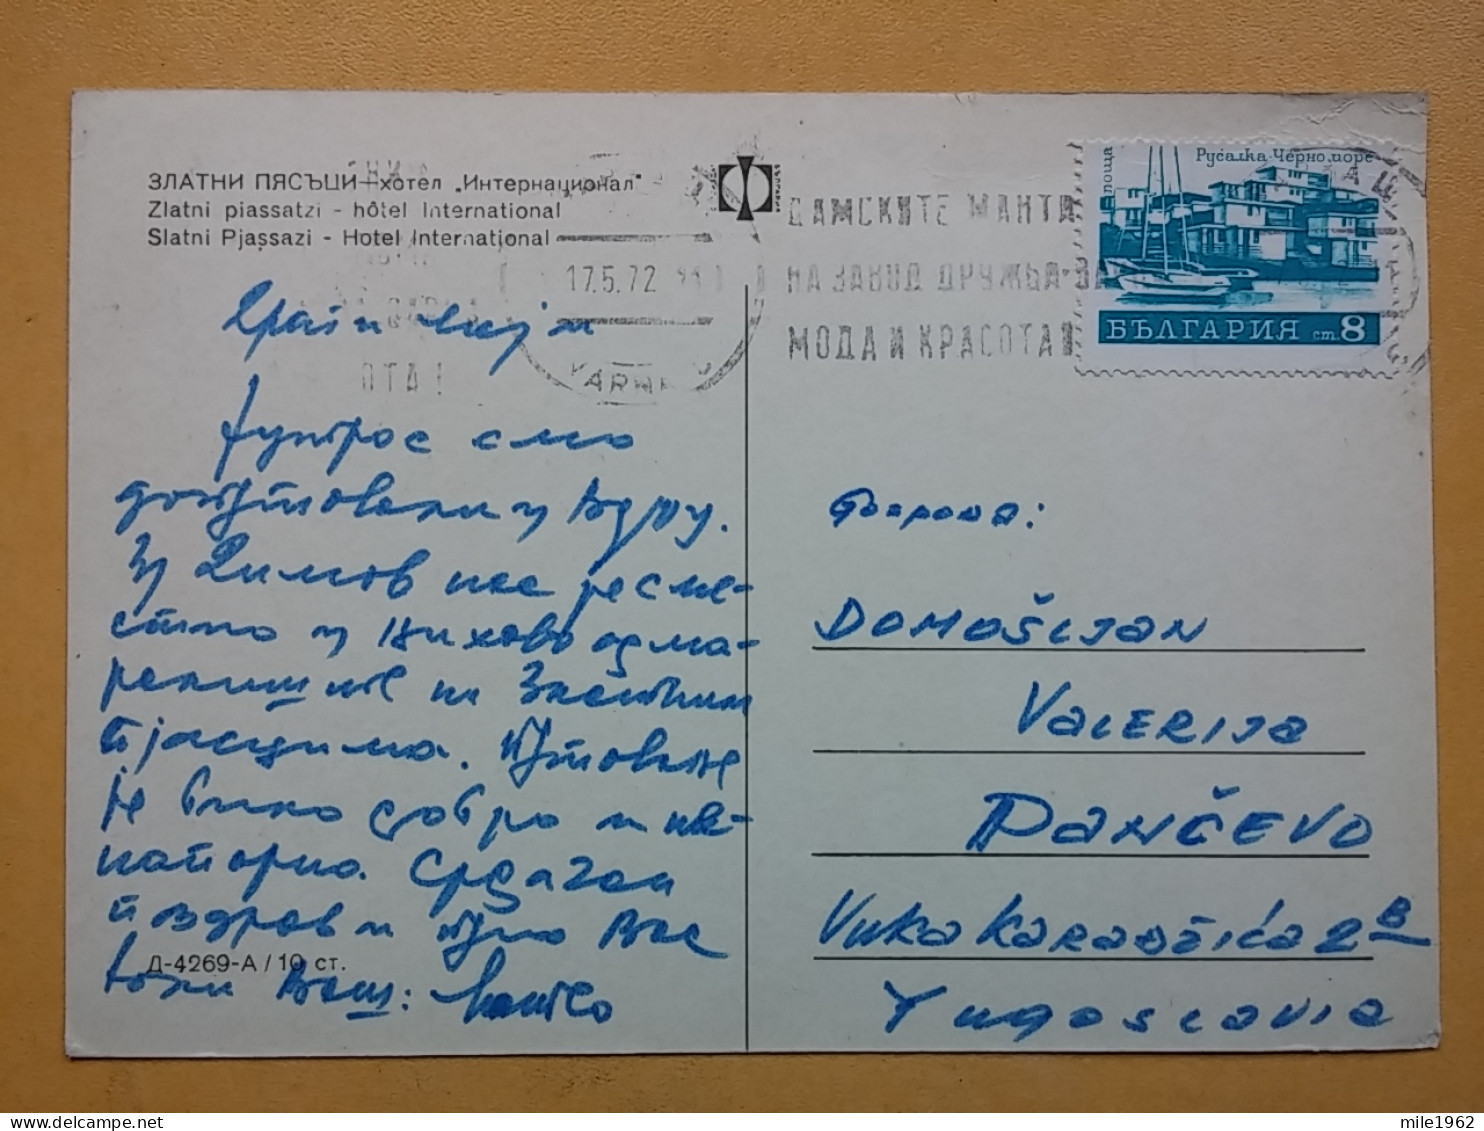 ЗЛАТНИ ПЯСЪЦИ – хотел „Интернационал"
Zlatni piassatzi - hôtel International
Slatni Pjassazi - Hotel International
17.5.72
VARNA
ДАМСКИТЕ МАНТА
НА ЗАВОД ДРУЖБА-ВА
МОДА И КРАСОТА
поща
Русалка-Черно море
БЪЛГАРИЯ ст.8
Јутрос смо
допутовали у Варну.
За Димов нас је сме-
стио у њихово одма-
ралиште на Златним
пјасцима. Путовање
је било добро и на-
порно. Срдачан
поздрав и пуно Вас
воли Ваш:
Д-4269-А / 10 ст.
DOMOŠIJAN
VALERIJA
PANČEVO
VUKA KARADŽIĆA 2 B
Yugoslavia
mile1962